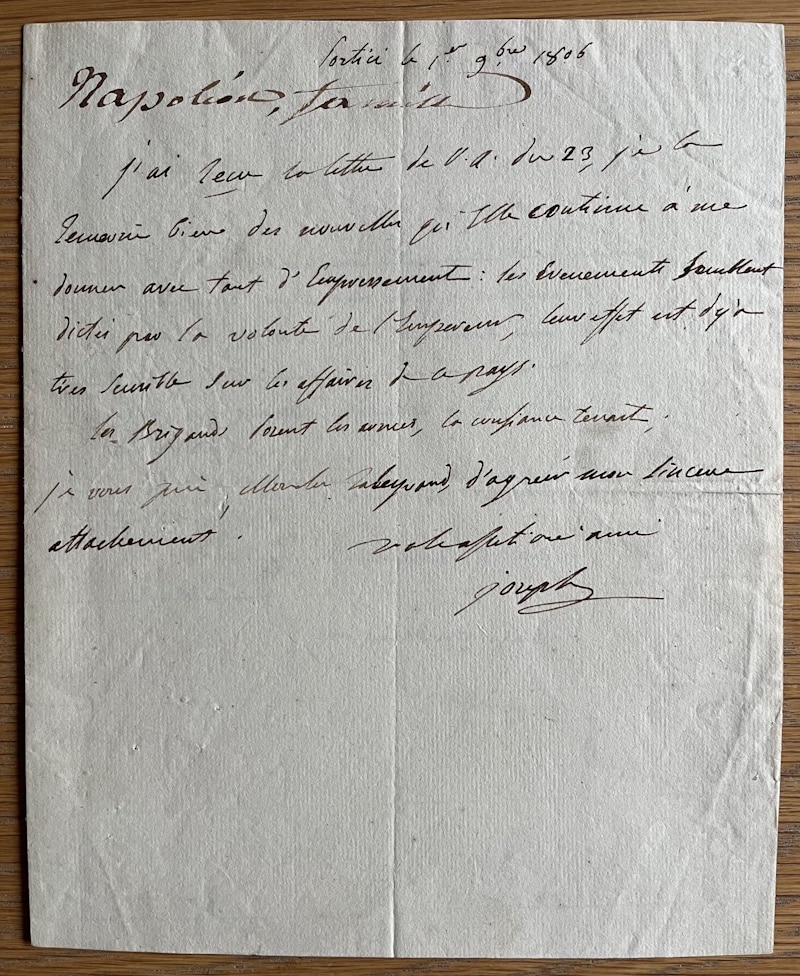 Portici le 1er 9bre 1806
Napoléon, famille
j'ai recu la lettre de V. A. du 23, je la
remercie bien des nouvelles qu'Elle continue à me
donner avec tant d'Empressement : les Evenements semblent
dictés par la volonté de l'Empereur, leur effet est deja
tres sensible sur les affaires de ce pays.
les Brigands posent les armes, la confiance renait,
je vous prie, Monsr Taleyrand, d'agréer mon sincere
attachement. votre affectioné ami
joseph